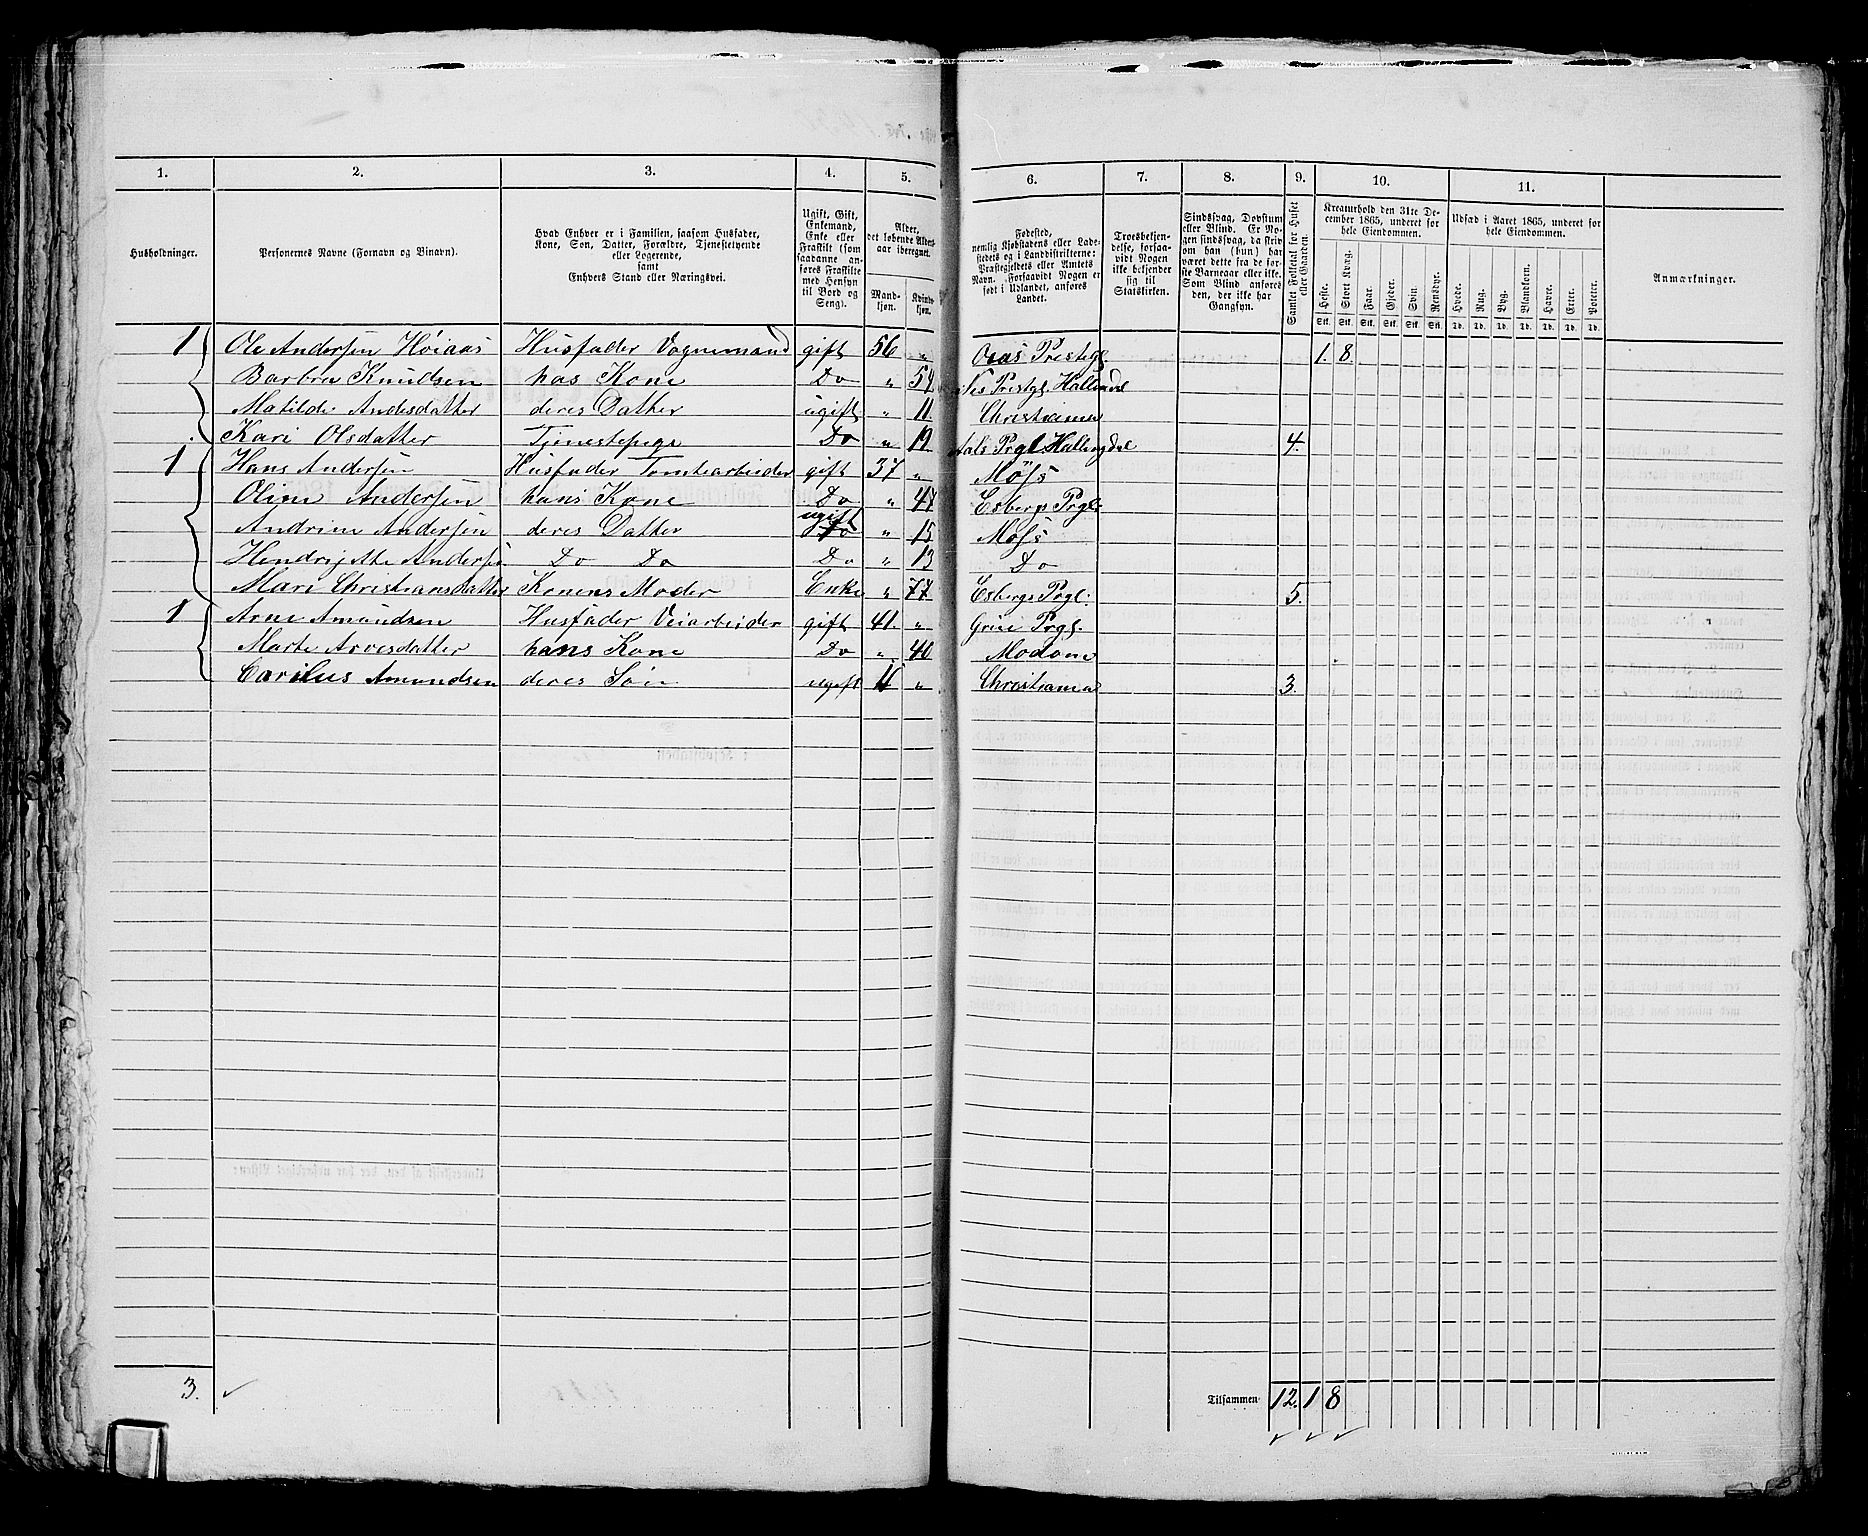 1. 2. 3. 4. 5. 6. 7. 8. 9. 10. 11.
Husholdninger.
Personernes Navne (Fornavn og Binavn).
Hvad Enhver er i Familien, saasom Husfader,
Kone, Søn, Datter, Forældre, Tjenestetyende
eller Logerende,
samt
Enhvers Stand eller Næringsvei.
Ugift, Gift,
Enkemand,
Enke eller
Fraskilt (som
saadanne an-
føres Fraskilte
med Hensyn
til Bord og
Seng).
Alder,
det løbende Alders-
aar iberegnet.
Mand-
kjøn.
Kvinde-
kjøn.
Fødested,
nemlig Kjøbstadens eller Lade-
stedets og i Landdistrikterne:
Præstegjeldets eller Amtets
Navn. Forsaavidt Nogen er
født i Udlandet, anføres
Landet.
Troesbekjen-
delse, forsaa-
vidt Nogen
ikke bekjender
sig til
Statskirken.
Sindssvag, Døvstum
eller Blind. Er No-
gen sindssvag, da skriv
om han (hun) har
været dette fra de før-
ste Barneaar eller ikke.
Som Blind anføres
den, der ikke har
Gangsyn.
Samlet Folketal for Huset
eller Gaarden.
Kreaturhold den 31te De-
cember 1865, underet for
hele Eiendommen.
Heste. Stort Kvæg. Faar. Gjeder. Svin. Rensdyr.
Stk. Stk. Stk. Stk. Stk. Stk.
Udsæd i Aaret 1865, underet for
hele Eiendommen.
Hvede. Rug. Byg. Blandkorn. Havre. Erter. Poteter.
Td. Td. Td. Td. Td. Td. Td.
Anmærkninger.
1 Ole Andersen Høiaas Husfader Vognmand gift 56 " Aas Prestegl. 1. 8.
Barbra Knudsen has Kone Do " 54 Nes Prestgl. Hallingdal
Matilde Andersdatter deres Datter ugift " 11. Christiania
Kari Olsdatter Tjenestepige Do " 19. Aals Prgl. Hallingdal 4.
1 Hans Andersen Husfader Tomtearbeider gift 37 " Moss
Oline Andersen hans Kone Do " 47 Esbergs Prgl.
Andrine Andersen deres Datter ugift " 15 Moss
Hendrijette Andersen Do Do Do " 13 Do
Mari Christiansdatter Konens Moder Enke " 77. Esbergs Prgl. 5.
1 Arne Amundsen Husfader Veiarbeider gift 41. " Prgl.
Marte Arvesdatter hans Kone Do " 40 Modum
Carilus Amundsen deres Søn ugift 11 " Christiania 3.
3. Tilsammen 12. 1 8